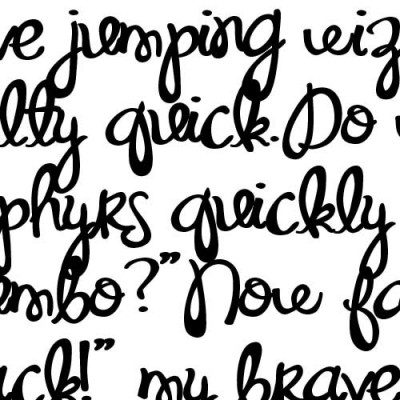 ve jumping wiz
lty quick. Do
phyrs quickly
umbo?” Now fa
ack!” my brave